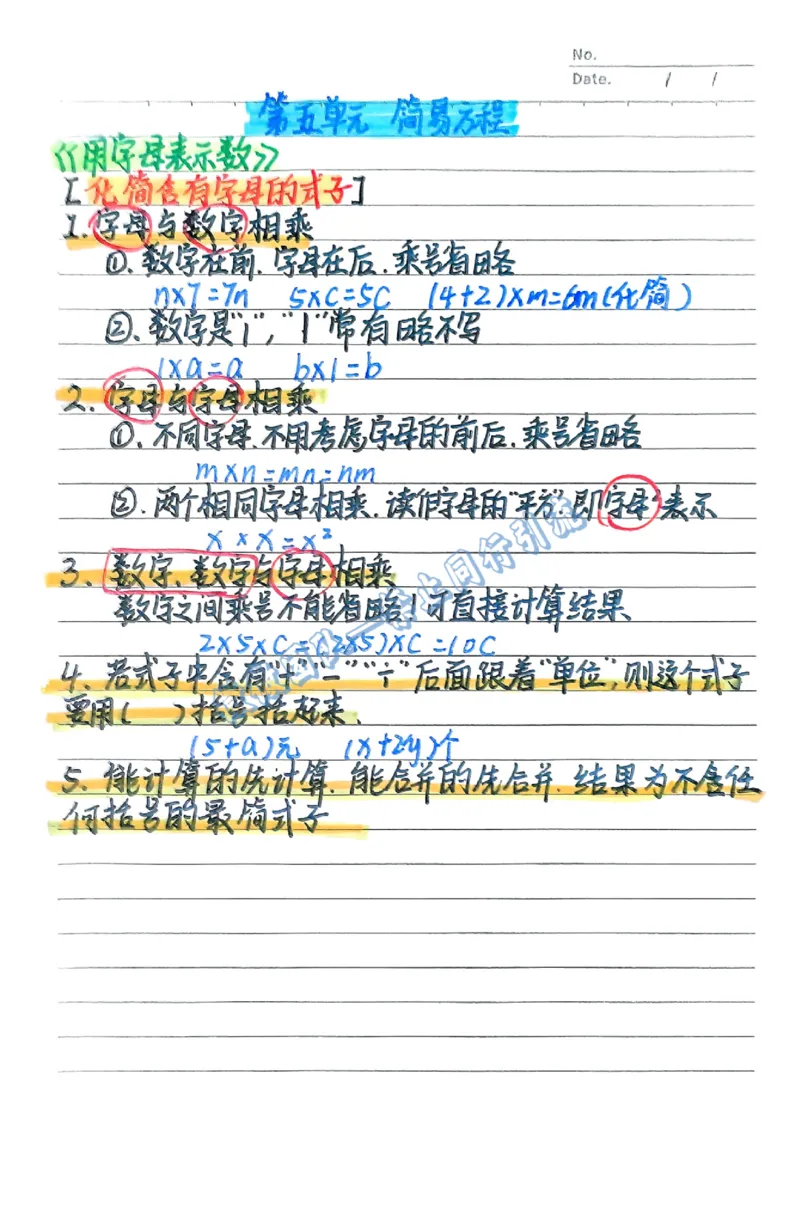 No.
Date. / /
第五单元 简易方程
《用字母表示数》
[化简含有字母的式子]
1.字母与数字相乘
①.数字在前.字母在后.乘号省略
n×7=7n 5×C=5C (4+2)×m=6m(化简)
②.数字是"1","1"常省略不写
1×a=a b×1=b
2.字母与字母相乘
①.不同字母.不用考虑字母的前后.乘号省略
m×n=mn=nm
②.两个相同字母相乘.读作字母的"平方".即字母²表示
x×x=x²
3、数字、数字与字母相乘
数字之间乘号不能省略!可直接计算结果
2×5×C=(2×5)×C=10C
4、若式子中含有"+""-""÷"后面跟着"单位",则这个式子
要用( )括号括起来
(5+a)元 (x+2y)个
5.能计算的先计算.能合并的先合并.结果为不含任
何括号的最简式子